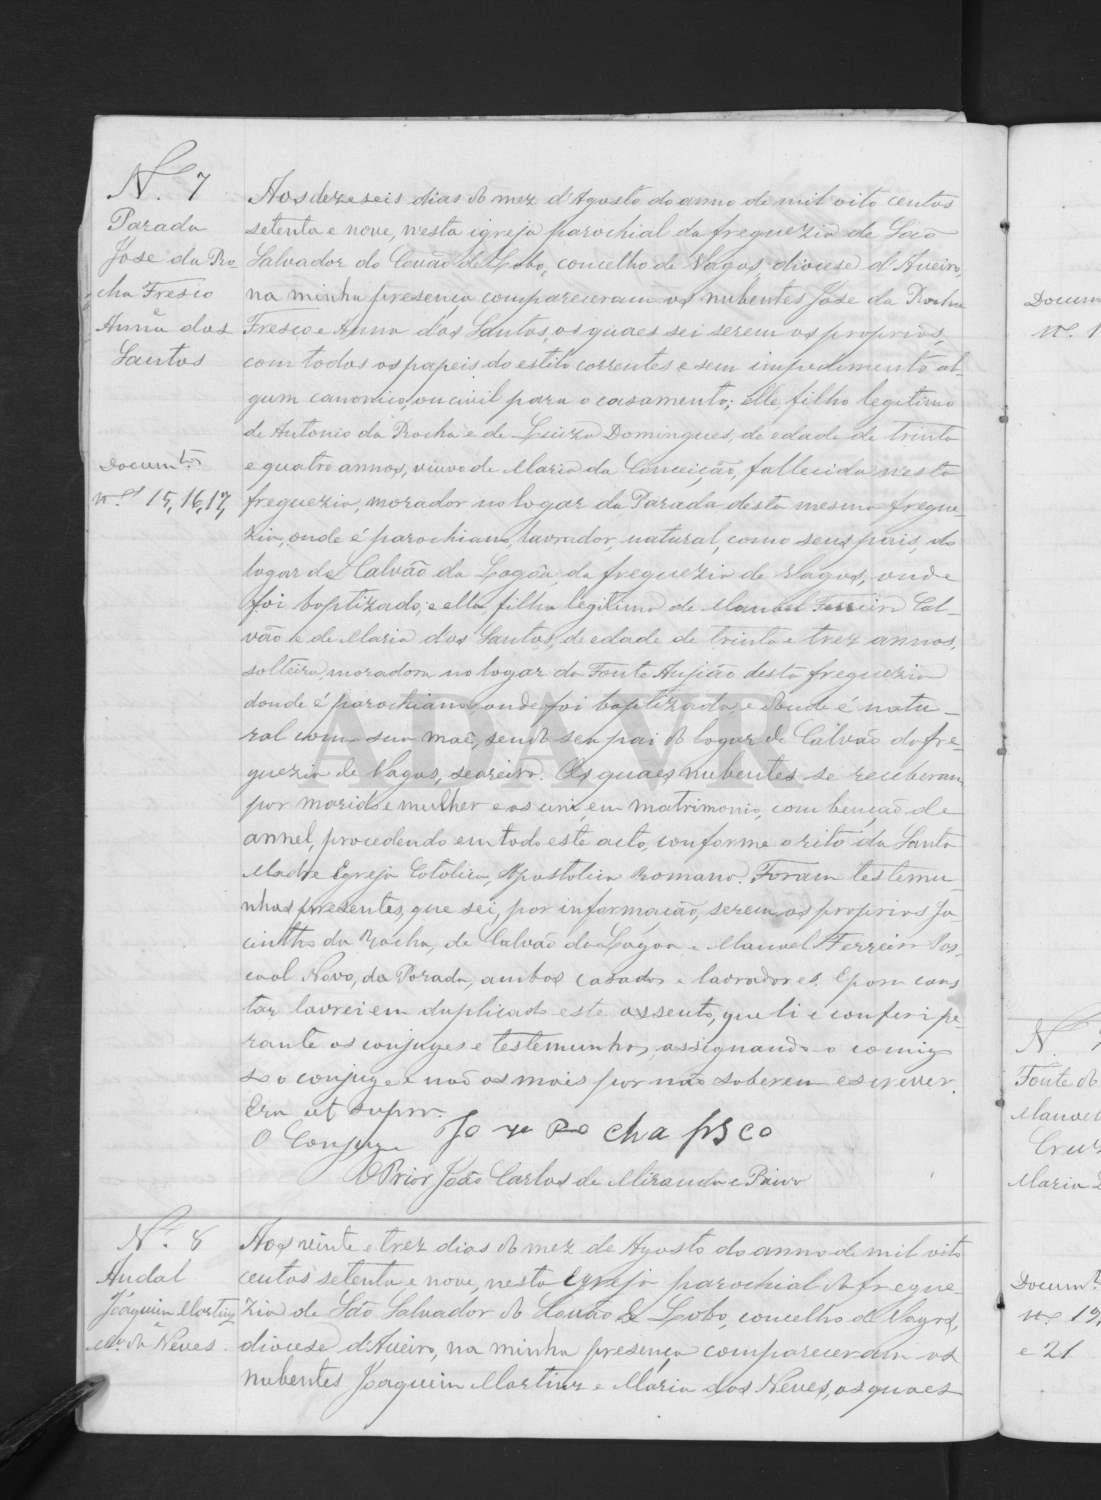 N.º 7
Parada
José da Ro-
cha Fresco
e
Anna dos
Santos
Docum.tos
n.os 15, 16, 17,
Aos dezeseis dias do mez d'Agosto do anno de mil oito centos
setenta e nove, nesta igreja parochial da freguezia de São
Salvador do Covão do Lobo, concelho de Vagos, diocese d'Aveiro,
na minha presença compareceram os nubentes José da Rocha
Fresco e Anna dos Santos, os quaes sei serem os proprios,
com todos os papeis do estilo correntes e sem impedimento al-
gum canonico, ou civil para o casamento; elle, filho legitimo
de Antonio da Rocha e de Luiza Domingues, de edade de trinta
e quatro annos, viuvo de Maria da Conceição, fallecida nesta
freguezia, morador no logar da Parada desta mesma fregue-
zia, onde é parochiano, lavrador, natural, como seus pais, do
logar de Calvão da Lagôa, da freguezia de Vagos, onde
foi baptizado; e ella, filha legitima de Manoel Ferreira Cal-
vão e de Maria dos Santos, de edade de trinta e trez annos,
solteira, moradora no logar da Fonte d'Anjião desta freguezia
donde é parochiana, onde foi baptizada e donde é natu-
ral com sua mãe, sendo seu pai do logar de Calvão da fre-
guezia de Vagos, seareiro. Os quaes nubentes se receberam
por marido e mulher e os uni em matrimonio, com benção de
annel, procedendo em todo este acto, conforme o rito da Santa
Madre Egreja Catolica, Apostolica Romana. Foram testemu-
nhas presentes, que sei, por informação, serem os proprios Ja
cintho da Rocha, de Calvão da Lagoa e Manoel Ferreira Pas-
coal Novo, da Parada, ambos casados e lavradores. E para cons
tar lavrei em duplicado este assento, que li e conferi pe-
rante os conjuges e testemunhas, assignando o comigo
só o conjuge e não os mais por não saberem escrever.
Era ut supra.
O Conjuge
O Prior João Carlos de Miranda e Paiva
N.º 8
Andal
Joaquim Martins
e
M.a das Neves
Aos vinte e trez dias do mez de Agosto do anno de mil oito
centos setenta e nove, nesta Egreja parochial da fregue-
zia de São Salvador do Covão do Lobo, concelho de Vagos,
diocese d'Aveiro, na minha presença compareceram os
nubentes Joaquim Martins e Maria das Neves, os quaes
ADAVR
Docum
N.º 1
N.
Fonte do
Manoel
Cruz
Maria
Docum.t
n.os 19,
e 21